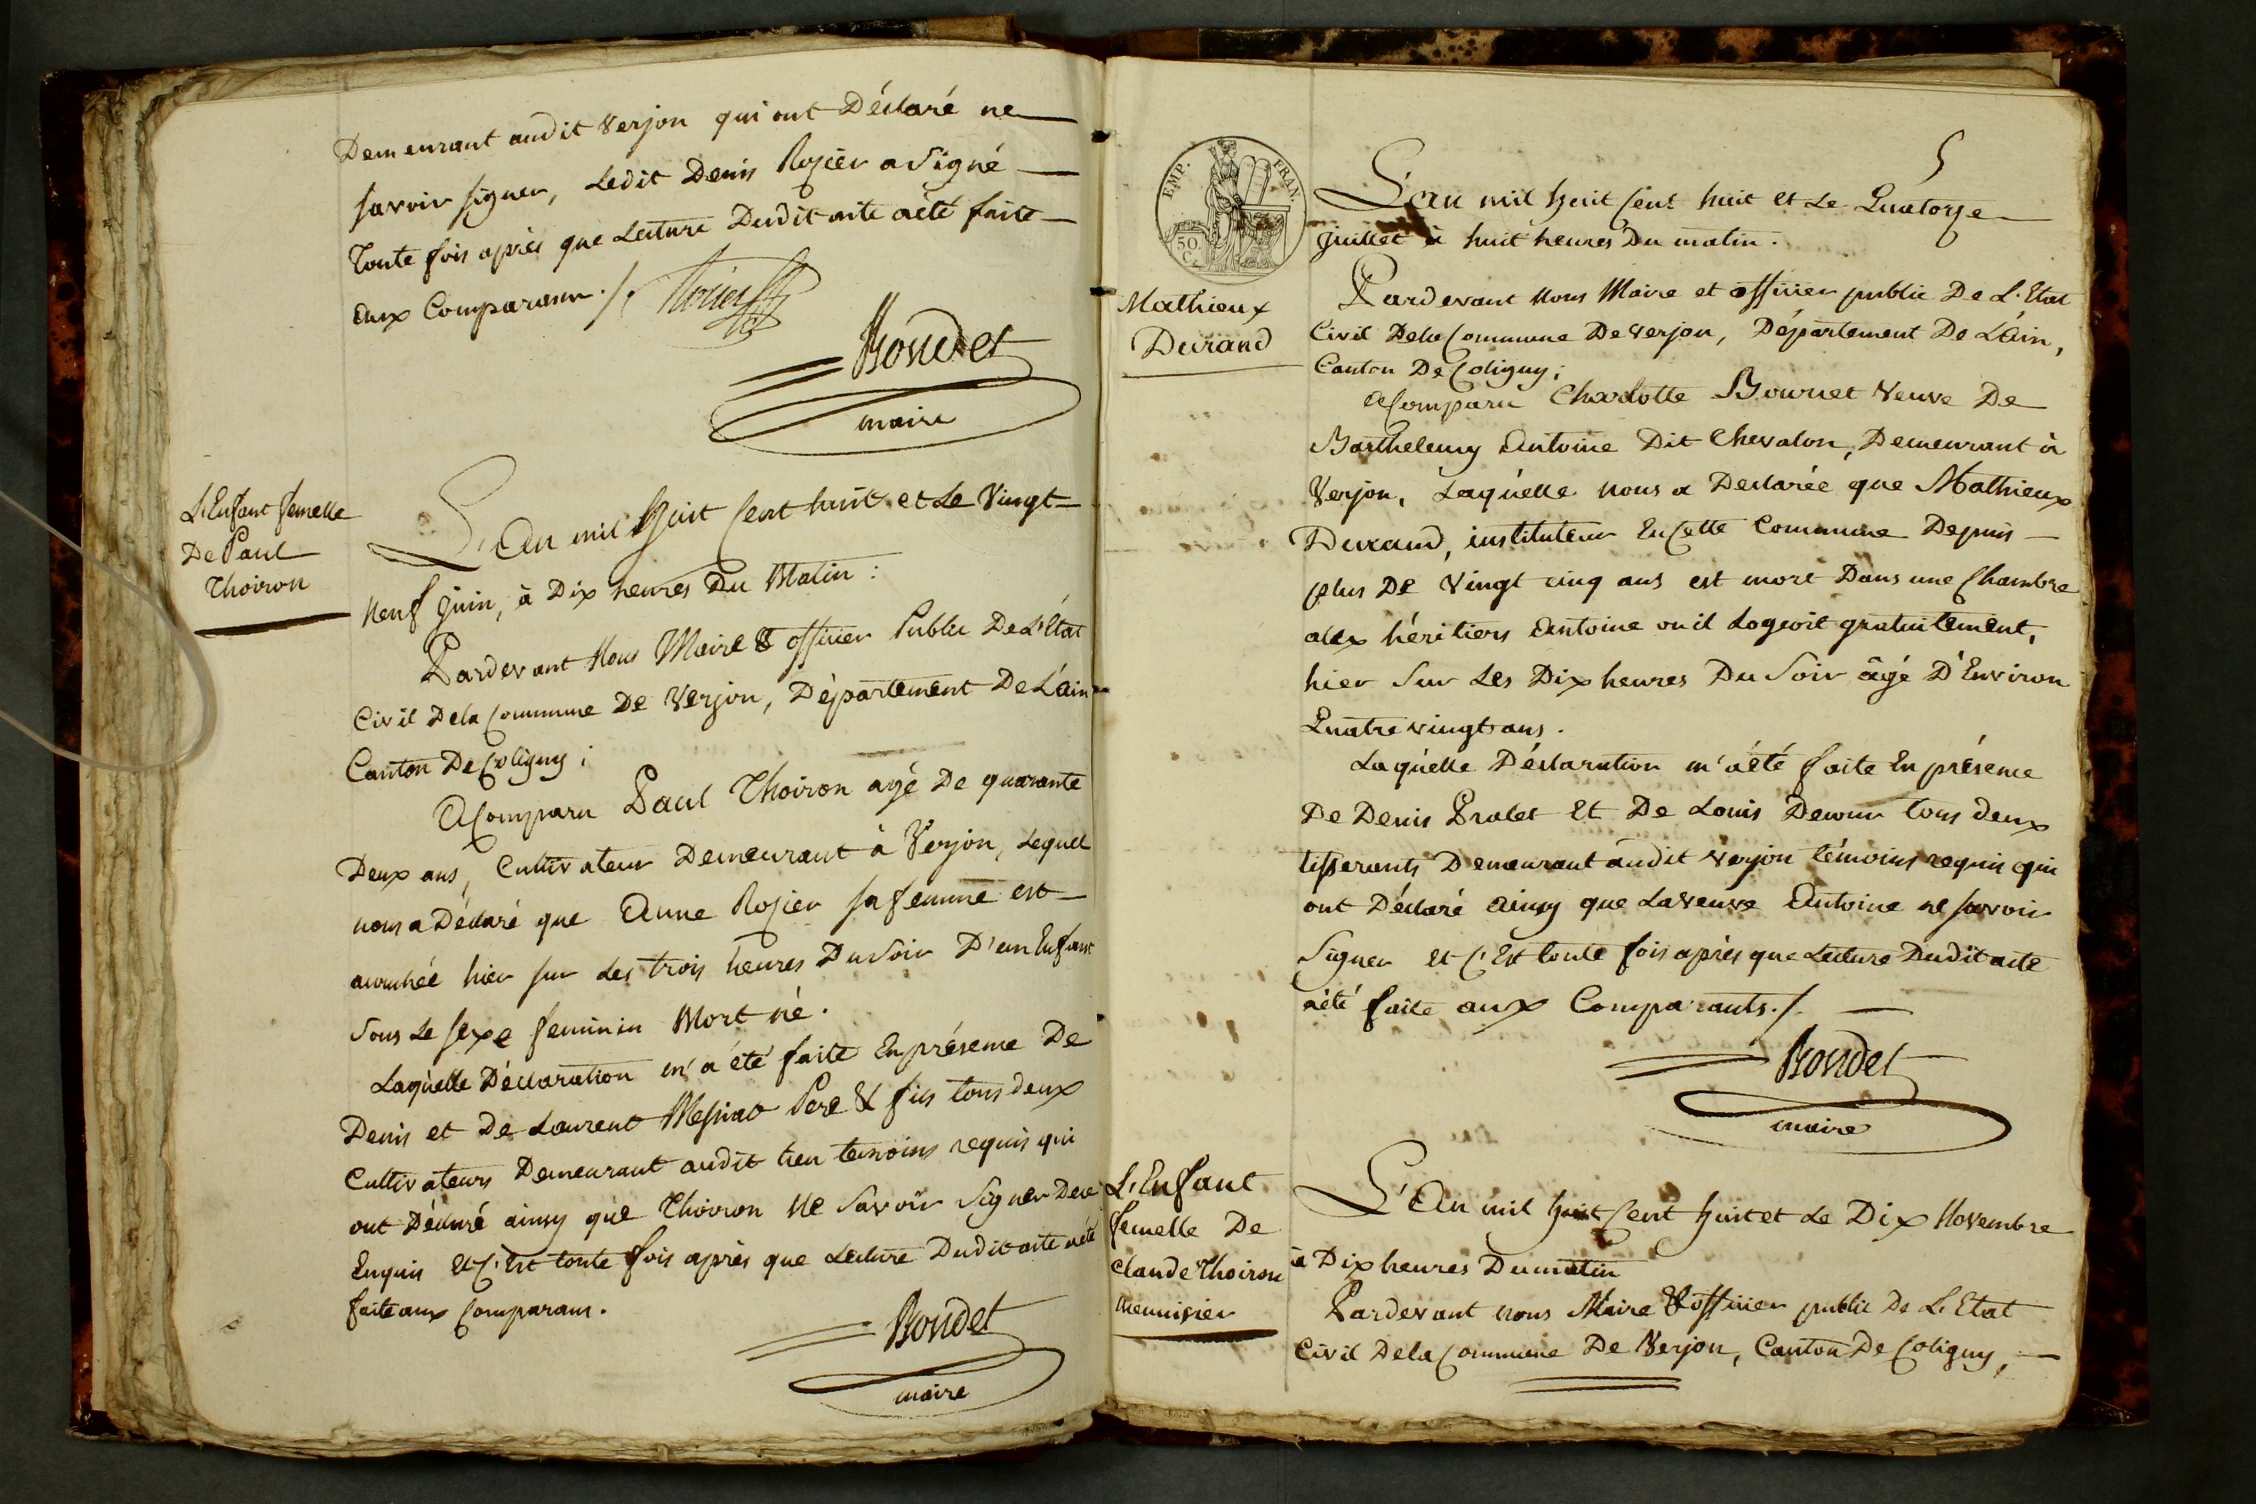 Demeurant audit Verjon qui ont Déclaré ne
savoir signer, Ledit Denis Rozier a Signé
Toute fois après que Lecture Dudit acte a été faite
aux Comparans ./.
Bondet
maire
L'Enfant femelle
De Paul
Thoiron
L'An mil huit Cent huit et Le Vingt
Neuf Juin, à Dix heures Du Matin :
Pardevant Nous Maire & officier Public De L'État
Civil De la Commune De Verjon, Département De L'ain
Canton De Coligny ;
A Comparu Paul Thoiron agé De quarante
Deux ans, Cultivateur Demeurant à Verjon, Lequel
nous a Déclaré que Anne Rozier sa femme est
accouchée hier sur Les trois heures Du Soir D'un Enfant
Sous Le sexe feminin Mort né.
Laquelle Déclaration m'a été faite En présence De
Denis et De Laurent Messiat Pere & fils tous deux
Cultivateurs Demeurant audit lieu temoins requis qui
ont Déclaré ainsy que Thoiron Ne Savoir Signer De ce
Enquis Et C'Est toute fois après que Lecture Dudit acte a été
faite aux Comparans.
Bondet
maire
5
EMP. FRAN.
50.
C.
Mathieux
Durand
L'an mil huit Cent huit et Le Quatorze
Juillet à huit heures Du matin.
Pardevant Nous Maire et officier public De L'Etat
Civil De la Commune De Verjon, Département De L'Ain,
Canton De Coligny ;
A Comparu Charlotte Bournet Veuve De
Barthelemy Antoine Dit Chevalon, Demeurant à
Verjon, Laquelle nous a Declarée que Mathieux
Durand, instituteur En Cette Commune Depuis
plus De Vingt cinq ans est mort Dans une Chambre
aux héritiers Antoine ou il Logeoit gratuitement,
hier Sur Les Dix heures Du Soir âgé D'Environ
Quatre vingt ans.
Laquelle Déclaration m'a été faite En présence
De Denis Pralet Et De Louis tous deux
tisserants Demeurant audit Verjon témoins requis qui
ont Déclaré ainsy que La Veuve Antoine ne savoir
Signer et C'Est toute fois après que Lecture Dudit acte
a été faite aux Comparants ./.
Bondet
maire
L'Enfant
femelle De
Claude Thoiron
Menuisier
L'An mil huit Cent huit et Le Dix Novembre
à Dix heures Du matin
Pardevant nous Maire & officier public De L'Etat
Civil De la Commune De Verjon, Canton De Coligny,